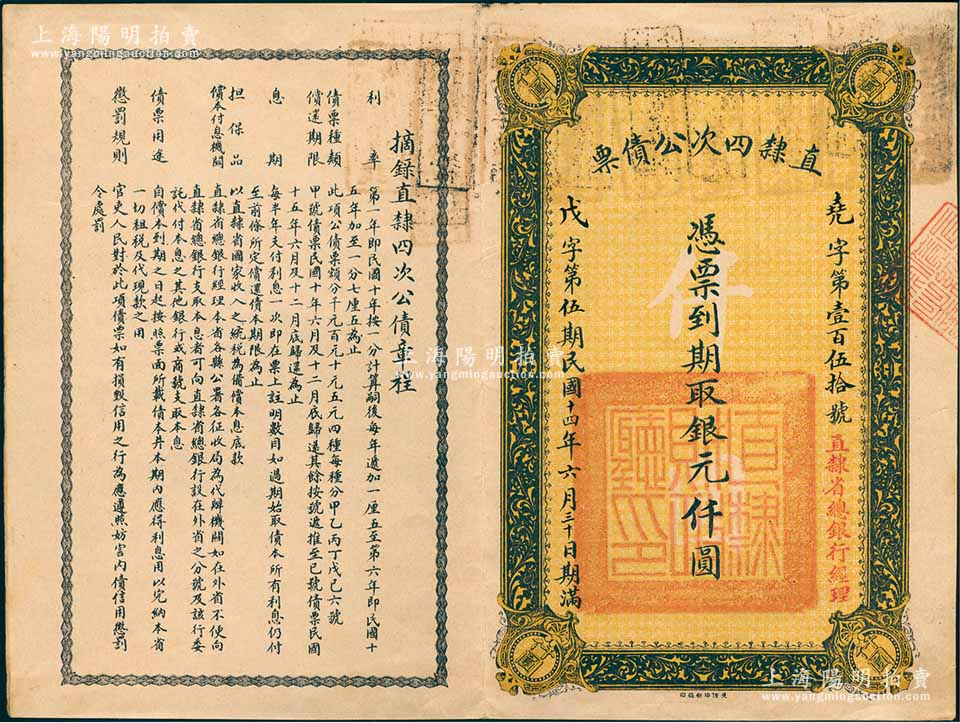 直隸四次公債票
堯字第壹百伍拾號
直隸省總銀行經理
憑票到期取銀元仟圓
仟
戊字第伍期民國十四年六月三十日期滿
直隸財政廳印
摘錄直隸四次公債章程
利率 第一年即民國十年按一分計算嗣後每年遞加一厘五至第六年即民國十
五年加至一分七厘五為止
債票種類 此項公債票額分千元百元十元五元四種每種分甲乙丙丁戊己六號
償還期限 甲號債票民國十年六月及十二月底歸還其餘按號遞推至己號債票民國
十五年六月及十二月底歸還為止
息期 每半年支付利息一次即在票上註明數目如過期始取債本所有利息仍付
至前條所定償還債本期限為止
担保品 以直隸省國家收入之統稅為備償本息底款
償本付息機關 直隸省總銀行經理本省各縣公署各征收局為代辦機關如在外省不便向
直隸省總銀行支取本息者可向直隸省總銀行設在外省之分號及該行委
託代付本息之其他銀行或商號支取本息
債票用途 自償本到期之日起按照票面所載債本并本期內應得利息用以完納本省
一切租稅及代現款之用
懲罰規則 官吏人民對於此項債票如有損毀信用之行為應遵照妨害內債信用懲罰
令處罰
上海陽明拍賣
www.yangmingauction.com
上海陽明拍賣
www.yangmingauction.com
上海陽明拍賣
www.yangmingauction.com